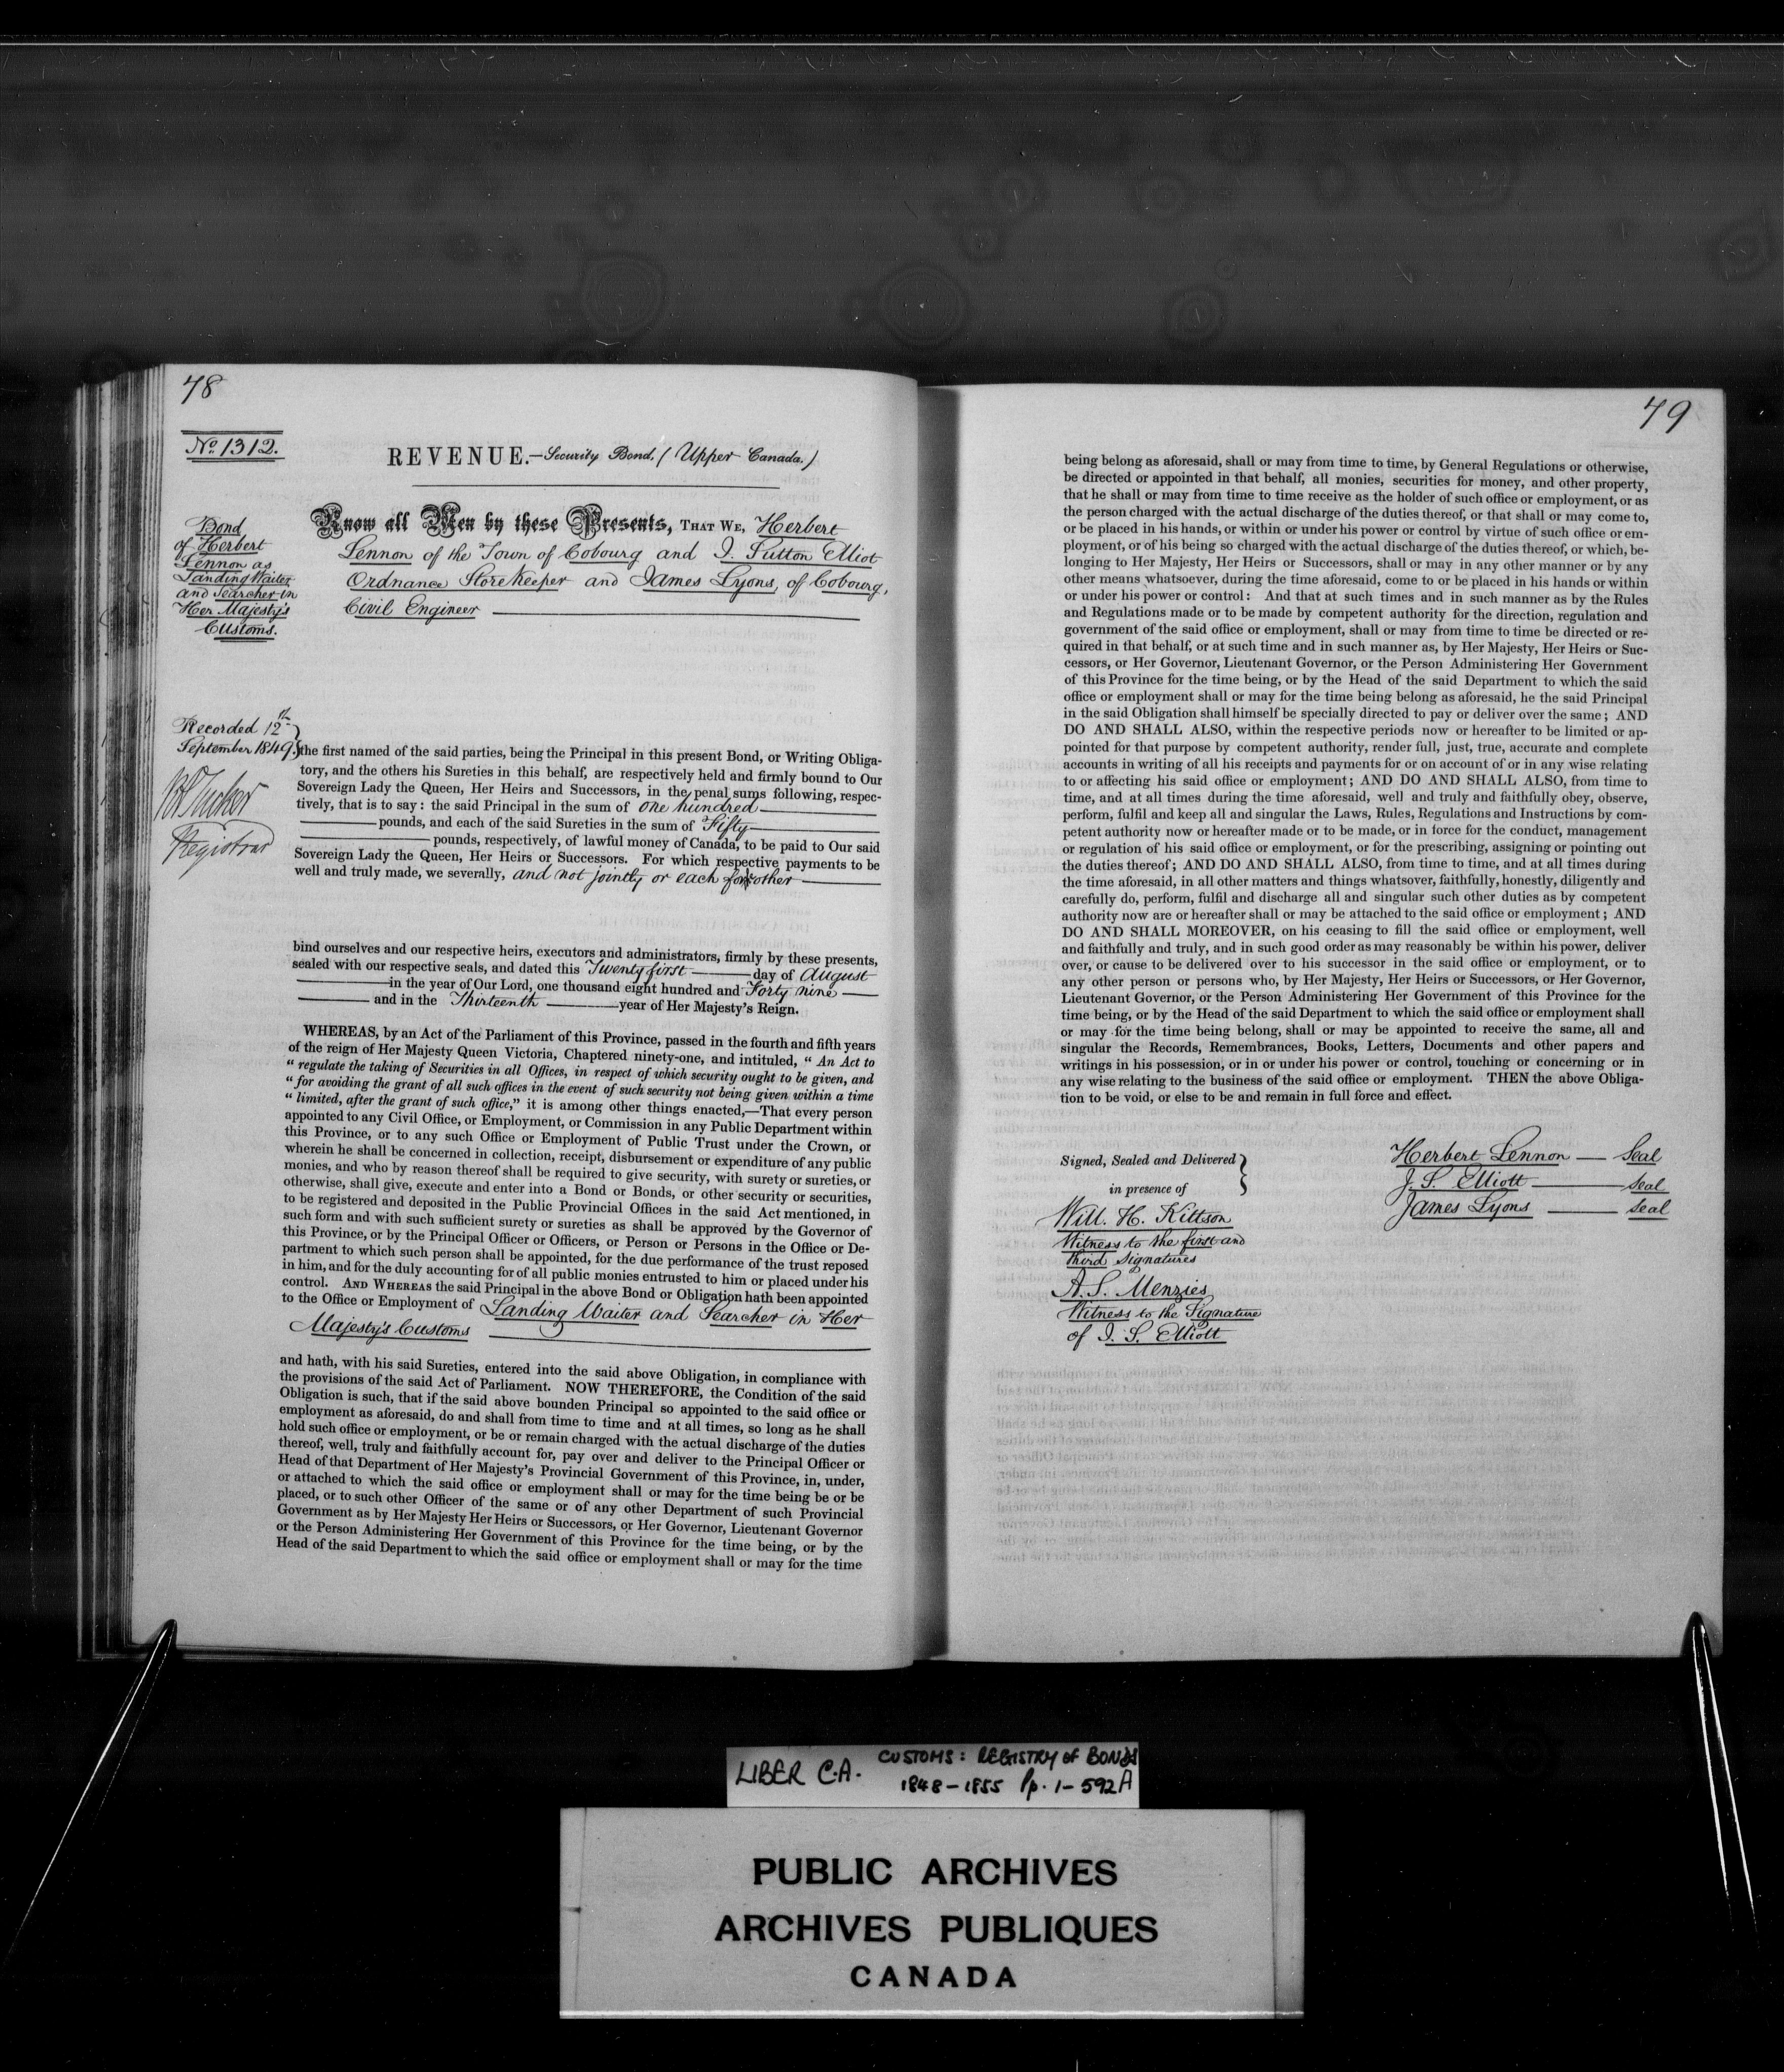 78
No. 1312.
REVENUE.—Security Bond. (Upper Canada.)
Bond
of Herbert
Lennon as
Landing Waiter
and Searcher in
Her Majesty's
Customs.
Know all Men by these Presents, THAT WE, Herbert
Lennon of the Town of Cobourg and J. Sutton Elliot
Ordnance StoreKeeper and James Lyons, of Cobourg,
Civil Engineer
Recorded 12th
September 1849.
Tucker
Registrar
the first named of the said parties, being the Principal in this present Bond, or Writing Obliga-
tory, and the others his Sureties in this behalf, are respectively held and firmly bound to Our
Sovereign Lady the Queen, Her Heirs and Successors, in the penal sums following, respec-
tively, that is to say: the said Principal in the sum of one hundred
pounds, and each of the said Sureties in the sum of Fifty
pounds, respectively, of lawful money of Canada, to be paid to Our said
Sovereign Lady the Queen, Her Heirs or Successors. For which respective payments to be
well and truly made, we severally, and not jointly or each for other
bind ourselves and our respective heirs, executors and administrators, firmly by these presents,
sealed with our respective seals, and dated this Twenty first day of August
in the year of Our Lord, one thousand eight hundred and Forty nine
and in the Thirteenth year of Her Majesty's Reign.
WHEREAS, by an Act of the Parliament of this Province, passed in the fourth and fifth years
of the reign of Her Majesty Queen Victoria, Chaptered ninety-one, and intituled, “ An Act to
“ regulate the taking of Securities in all Offices, in respect of which security ought to be given, and
“ for avoiding the grant of all such offices in the event of such security not being given within a time
“ limited, after the grant of such office,” it is among other things enacted,—That every person
appointed to any Civil Office, or Employment, or Commission in any Public Department within
this Province, or to any such Office or Employment of Public Trust under the Crown, or
wherein he shall be concerned in collection, receipt, disbursement or expenditure of any public
monies, and who by reason thereof shall be required to give security, with surety or sureties, or
otherwise, shall give, execute and enter into a Bond or Bonds, or other security or securities,
to be registered and deposited in the Public Provincial Offices in the said Act mentioned, in
such form and with such sufficient surety or sureties as shall be approved by the Governor of
this Province, or by the Principal Officer or Officers, or Person or Persons in the Office or De-
partment to which such person shall be appointed, for the due performance of the trust reposed
in him, and for the duly accounting for of all public monies entrusted to him or placed under his
control. AND WHEREAS the said Principal in the above Bond or Obligation hath been appointed
to the Office or Employment of Landing Waiter and Searcher in Her
Majesty's Customs
and hath, with his said Sureties, entered into the said above Obligation, in compliance with
the provisions of the said Act of Parliament. NOW THEREFORE, the Condition of the said
Obligation is such, that if the said above bounden Principal so appointed to the said office or
employment as aforesaid, do and shall from time to time and at all times, so long as he shall
hold such office or employment, or be or remain charged with the actual discharge of the duties
thereof, well, truly and faithfully account for, pay over and deliver to the Principal Officer or
Head of that Department of Her Majesty's Provincial Government of this Province, in, under,
or attached to which the said office or employment shall or may for the time being be or be
placed, or to such other Officer of the same or of any other Department of such Provincial
Government as by Her Majesty Her Heirs or Successors, or Her Governor, Lieutenant Governor
or the Person Administering Her Government of this Province for the time being, or by the
Head of the said Department to which the said office or employment shall or may for the time
79
being belong as aforesaid, shall or may from time to time, by General Regulations or otherwise,
be directed or appointed in that behalf, all monies, securities for money, and other property,
that he shall or may from time to time receive as the holder of such office or employment, or as
the person charged with the actual discharge of the duties thereof, or that shall or may come to,
or be placed in his hands, or within or under his power or control by virtue of such office or em-
ployment, or of his being so charged with the actual discharge of the duties thereof, or which, be-
longing to Her Majesty, Her Heirs or Successors, shall or may in any other manner or by any
other means whatsoever, during the time aforesaid, come to or be placed in his hands or within
or under his power or control: And that at such times and in such manner as by the Rules
and Regulations made or to be made by competent authority for the direction, regulation and
government of the said office or employment, shall or may from time to time be directed or re-
quired in that behalf, or at such time and in such manner as, by Her Majesty, Her Heirs or Suc-
cessors, or Her Governor, Lieutenant Governor, or the Person Administering Her Government
of this Province for the time being, or by the Head of the said Department to which the said
office or employment shall or may for the time being belong as aforesaid, he the said Principal
in the said Obligation shall himself be specially directed to pay or deliver over the same; AND
DO AND SHALL ALSO, within the respective periods now or hereafter to be limited or ap-
pointed for that purpose by competent authority, render full, just, true, accurate and complete
accounts in writing of all his receipts and payments for or on account of or in any wise relating
to or affecting his said office or employment; AND DO AND SHALL ALSO, from time to
time, and at all times during the time aforesaid, well and truly and faithfully obey, observe,
perform, fulfil and keep all and singular the Laws, Rules, Regulations and Instructions by com-
petent authority now or hereafter made or to be made, or in force for the conduct, management
or regulation of his said office or employment, or for the prescribing, assigning or pointing out
the duties thereof; AND DO AND SHALL ALSO, from time to time, and at all times during
the time aforesaid, in all other matters and things whatsover, faithfully, honestly, diligently and
carefully do, perform, fulfil and discharge all and singular such other duties as by competent
authority now are or hereafter shall or may be attached to the said office or employment; AND
DO AND SHALL MOREOVER, on his ceasing to fill the said office or employment, well
and faithfully and truly, and in such good order as may reasonably be within his power, deliver
over, or cause to be delivered over to his successor in the said office or employment, or to
any other person or persons who, by Her Majesty, Her Heirs or Successors, or Her Governor,
Lieutenant Governor, or the Person Administering Her Government of this Province for the
time being, or by the Head of the said Department to which the said office or employment shall
or may for the time being belong, shall or may be appointed to receive the same, all and
singular the Records, Remembrances, Books, Letters, Documents and other papers and
writings in his possession, or in or under his power or control, touching or concerning or in
any wise relating to the business of the said office or employment. THEN the above Obliga-
tion to be void, or else to be and remain in full force and effect.
Signed, Sealed and Delivered
in presence of
Will. H. Kittson
Witness to the first and
third Signatures
A. S. Menzies
Witness to the Signature
of J. S. Elliott
Herbert Lennon — Seal
J. S. Elliott — Seal
James Lyons — Seal
LIBER C.A. CUSTOMS: REGISTRY of BONDS
1848-1855 Pp. 1-592A
PUBLIC ARCHIVES
ARCHIVES PUBLIQUES
CANADA